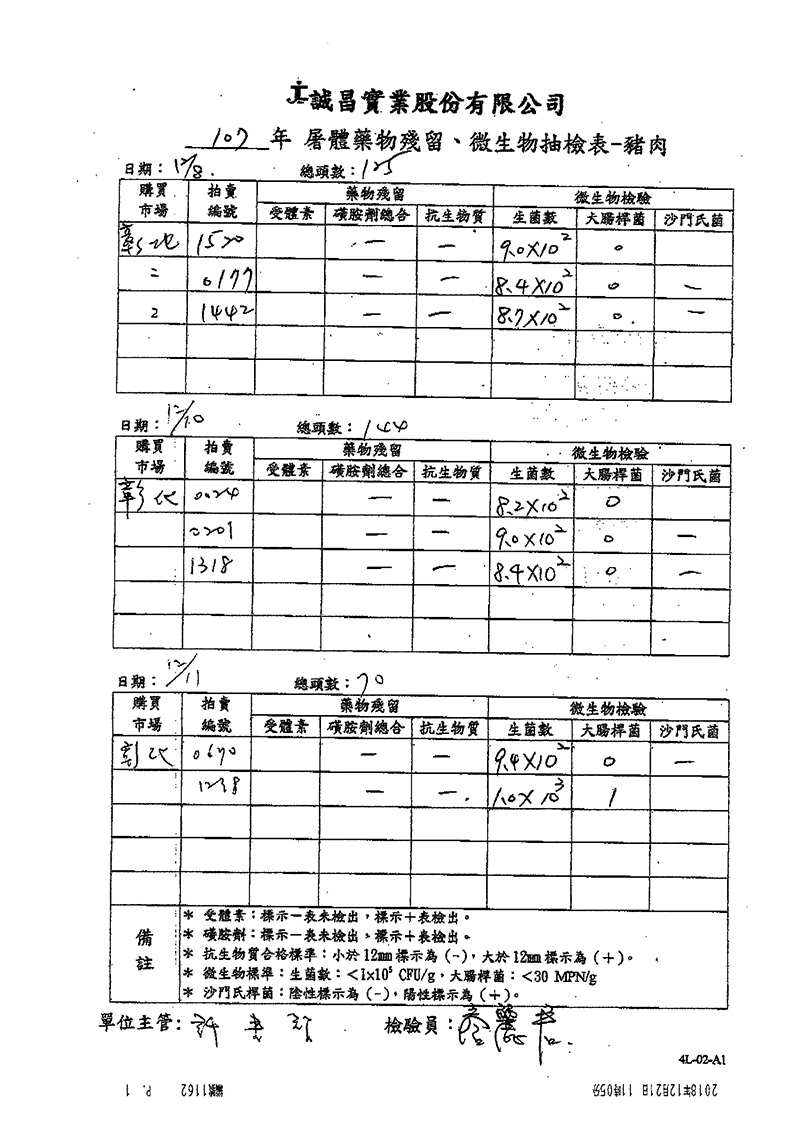 誠昌實業股份有限公司
107 年 屠體藥物殘留、微生物抽檢表-豬肉
日期：12/8. 總頭數：125
購買市場 拍賣編號 藥物殘留 微生物檢驗
受體素 磺胺劑總合 抗生物質 生菌數 大腸桿菌 沙門氏菌
彰化 1520 — — 9.0X10² 0
= 0177 — — 8.4X10² 0 —
2 1442 — — 8.7X10² 0. —
日期：12/10 總頭數：144
購買市場 拍賣編號 藥物殘留 微生物檢驗
受體素 磺胺劑總合 抗生物質 生菌數 大腸桿菌 沙門氏菌
彰化 0024 — — 8.2X10² 0
0201 — — 9.0X10² 0 —
1318 — — 8.4X10² 0 —
日期：12/11 總頭數：70
購買市場 拍賣編號 藥物殘留 微生物檢驗
受體素 磺胺劑總合 抗生物質 生菌數 大腸桿菌 沙門氏菌
彰化 0670 — — 9.4X10² 0 —
1238 — —. 1.0X10³ 1
備註
＊ 受體素：標示－表未檢出，標示＋表檢出。
＊ 磺胺劑：標示－表未檢出，標示＋表檢出。
＊ 抗生物質合格標準：小於12mm標示為（－），大於12mm標示為（＋）。
＊ 微生物標準：生菌數：＜1x10⁵ CFU/g，大腸桿菌：＜30 MPN/g
＊ 沙門氏桿菌：陰性標示為（－），陽性標示為（＋）。
單位主管: 許 檢驗員：
4L-02-A1
2018年12月21日 11時05分 編號1162 P. 1